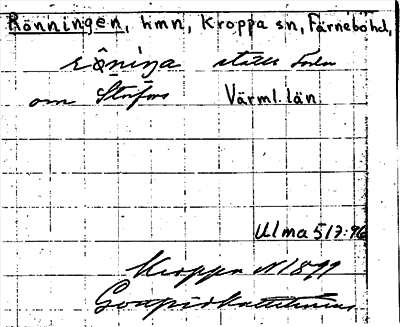 Rönningen, hmn, Kroppa sn, Färnebo hd,
ställe
om Storfors Värml. län.
Ulma 517:96
Kroppa N 1899